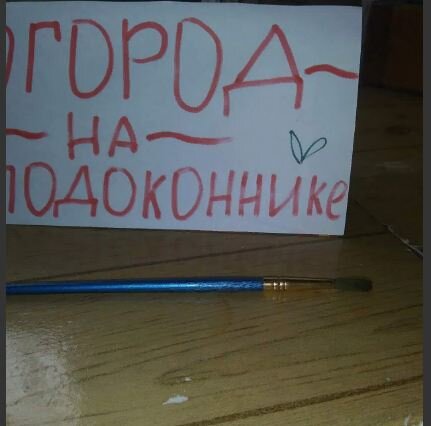 ОГОРОД~
~НА~
ПОДОКОННИКе